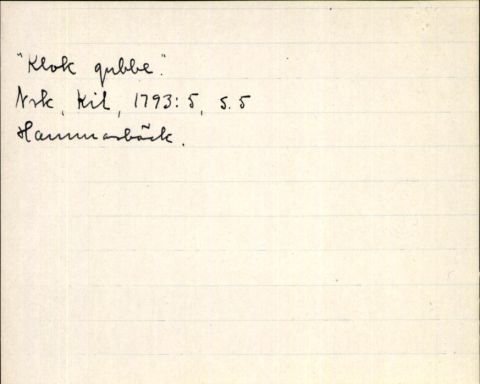 "Klok gubbe".
Nrk, Kil, 1793:5, s. 5
Hammarbäck.